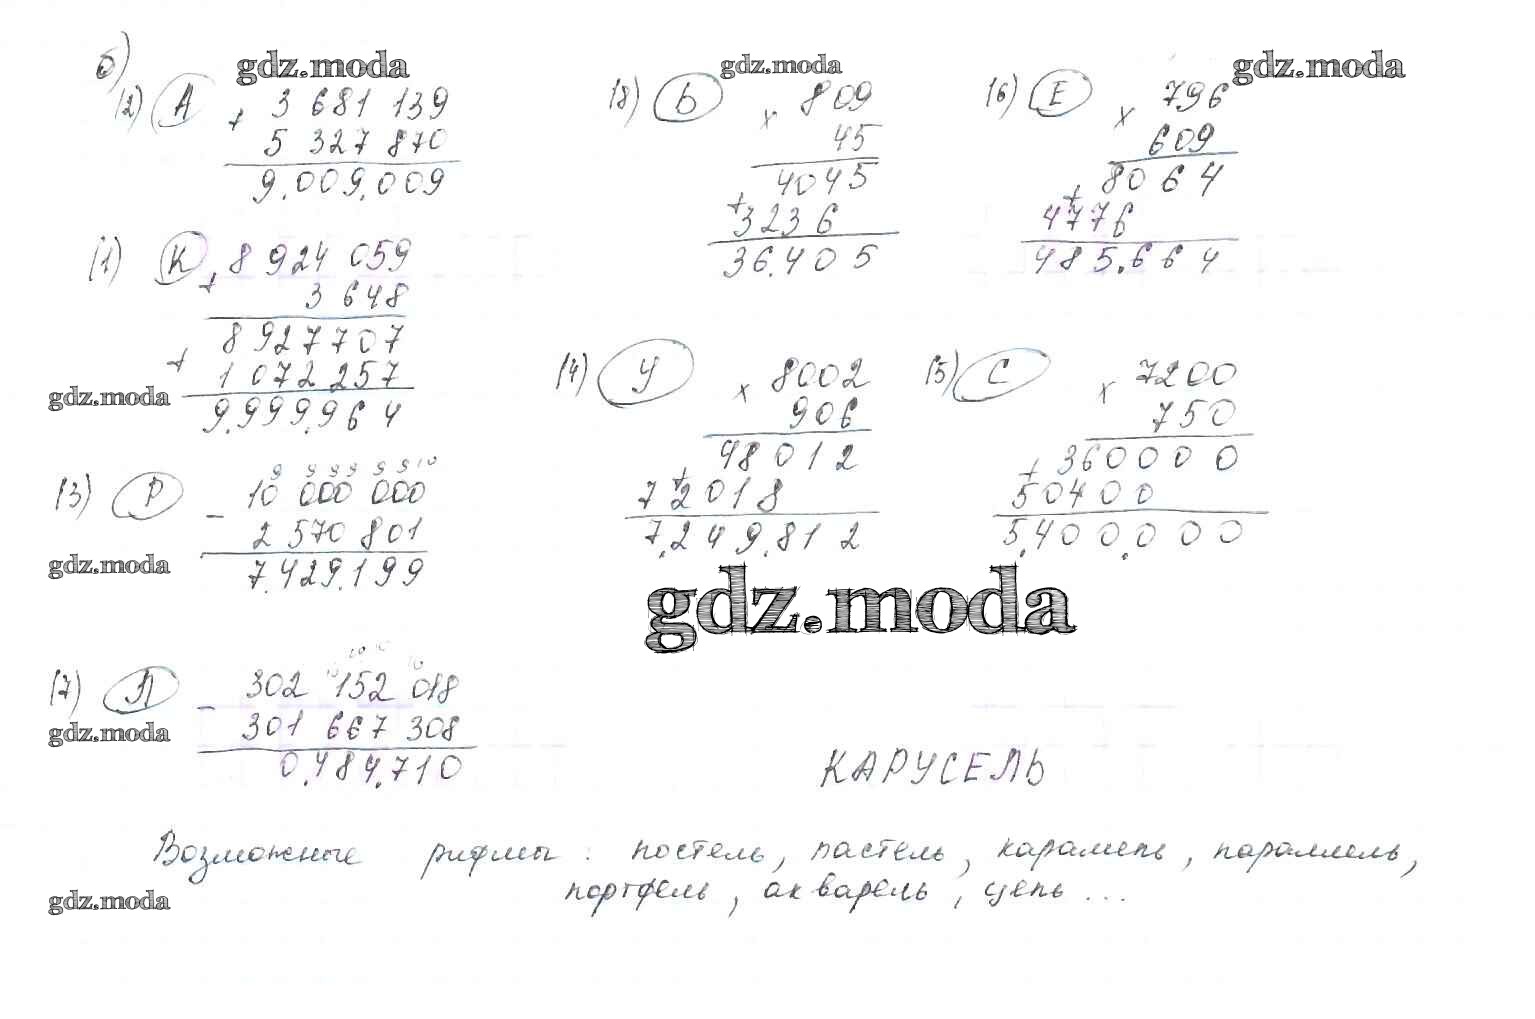 б)
gdz.moda
gdz.moda
gdz.moda
(2) А + 3 681 139
5 327 870
9.009.009
(8) Ь × 809
45
4045
+ 3236
36.405
(6) Е × 796
609
8064
+ 4776
485.664
(1) К + 8 924 059
3 648
8 927 707
+ 1 072 257
9.999.964
gdz.moda
(4) У × 8002
906
48012
+ 72018
7.249.812
(5) С × 7200
750
360000
+ 50400
5.400.000
9 9 9 9 9 9 10
(3) Р - 10 000 000
2 570 801
7.429.199
gdz.moda
gdz.moda
(7) Л - 302 152 018
301 667 308
0.484.710
gdz.moda
КАРУСЕЛЬ
Возможные рифмы : постель, пастель, карамель, параллель,
портфель, акварель, цепь ...
gdz.moda